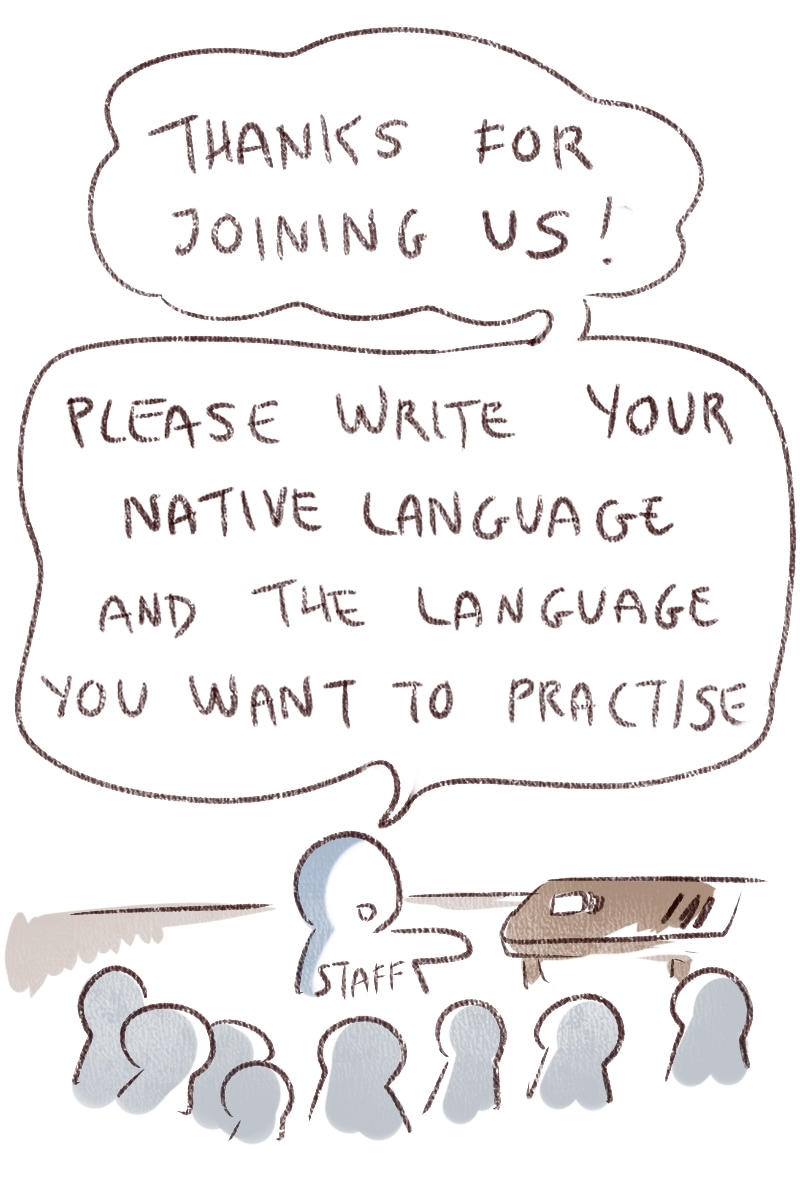 THANKS FOR
JOINING US!
PLEASE WRITE YOUR
NATIVE LANGUAGE
AND THE LANGUAGE
YOU WANT TO PRACTISE
STAFF